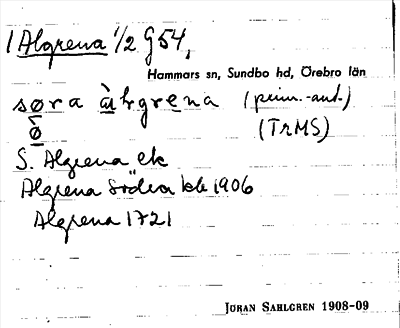 /Algrena 1/2 G54,
Hammars sn, Sundbo hd, Örebro län
søra àlgrena (prim.-ant.)
ö̀
(TrMS)
S. Algrena ek
Algrena Södra kb 1906
Algrena 1721
JÖRAN SAHLGREN 1908-09